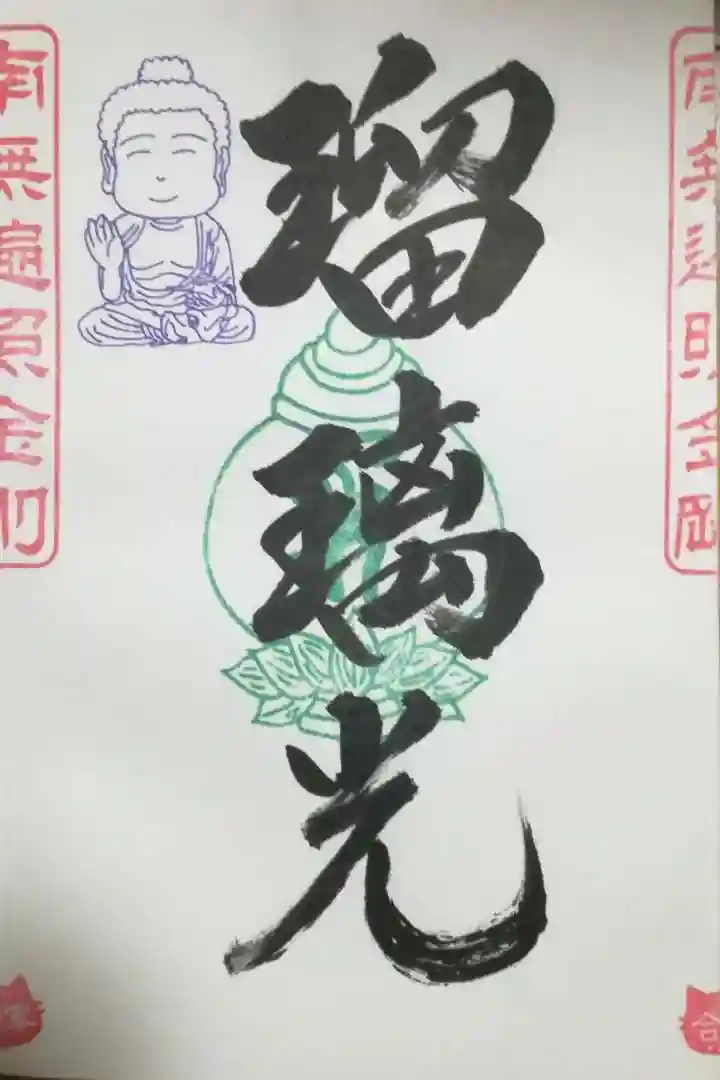 瑠璃光
南無遍照金剛
南無遍照金剛
合